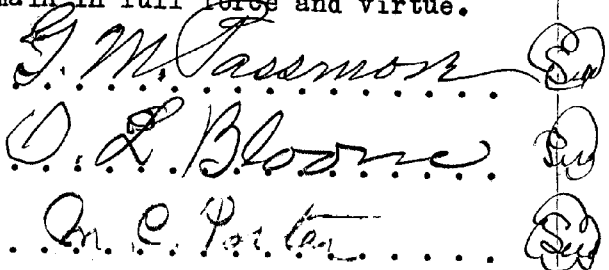 main in full force and virtue.
G. M. Passmore
O. L. Bloome
M. C. Porter